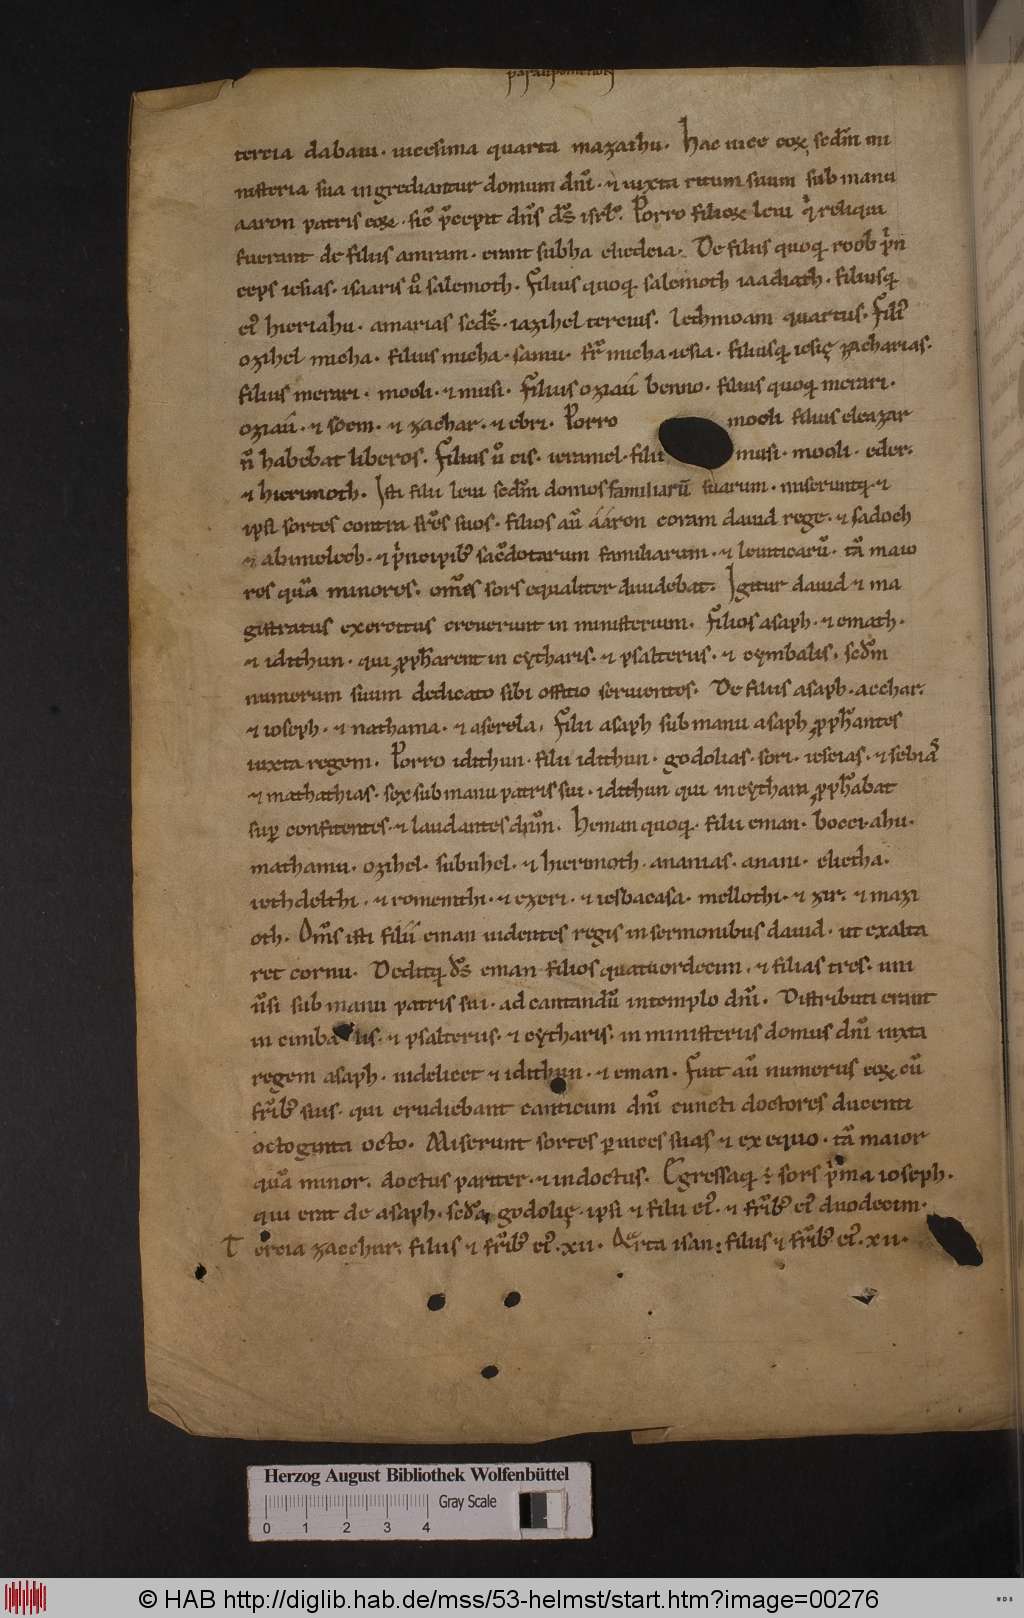 paralipomenon
tercia dabaiu. uicesima quarta mazaihu. Hae uice eoꝝ sedm̄ mi
nisteria sua ingrediantur domum dn̄i. ⁊ iuxta ritum suum sub manu
aaron patris eoꝝ. sic̄ p̄cepit dn̄s ds̄ isrl̓. Porro filioꝝ leui qͥ reliqui
fuerant de filiis amram. erant subha eliedeia. De filiis quoqꝫ roob pͥn
ceps iesias. isaaris u̓o salemoth. Filius quoqꝫ salemoth iaadiath. filiusqꝫ
ei̓ hieriahu. amarias seds̄. iazihel tercius. Iechmoam quartus. Filiꝰ
ozihel micha. filius micha. samu. fr̄ micha. iesia. filiusqꝫ iesię zacharias.
filius merari. mooli. ⁊ musi. Filius oziaú benno. filius quoqꝫ merari.
oziaú. ⁊ soem. ⁊ zachar. ⁊ ebri. Porro mooli filius eleazar
n̄ habebat liberos. Filius u̓o cis. ieramel. filii musi. mooli. eder.
⁊ hierimoth. Isti filii leui sedm̄ domos familiarū suarum. miseruntqꝫ ⁊
ipsi sortes contra fr̄es suos. filios aū ááron coram dauid rege. ⁊ sadoch
⁊ abimelech. ⁊ pͥncipibꝰ sac̄dotarum familiarum. ⁊ leuiticarū. tā maio
res quā minores. om̄es sors equaliter diuidebat. Igitur dauid ⁊ ma
gistratus exercitus creuerunt in ministerium. Filios asaph. ⁊ emath.
⁊ idithun. qui ꝓph̄arent in cytharis. ⁊ psalteriis. ⁊ cymbalis. sedm̄
numerum suum dedicato sibi offitio seruientes. De filiis asaph. acchar.
⁊ ioseph. ⁊ nathania. ⁊ aserela. Filii asaph sub manu asaph ꝓph̄antes
iuxta regem. Porro idithun. filii idithun. godolias. sori. ieseias. ⁊ sebiaˢ
⁊ mathathias. sex sub manu patris sui. idithun qui in cythara ꝓph̄abat
suꝑ confitentes. ⁊ laudantes dn̄m. Heman quoqꝫ. filii eman. bocci. ahu.
mathaniu. ozihel. subuhel. ⁊ hierimoth. ananias. anani. elietha.
iethdelthi. ⁊ romenthi. ⁊ ezeri. ⁊ iesbacasa. mellothi. ⁊ zir. ⁊ mazi
oth. Om̄s isti filii eman uidentes regis in sermonibus dauid. ut exalta
ret cornu. Deditqꝫ ds̄ eman filios quatuordecim. ⁊ filias tres. uni
u̓si sub manu patris sui. ad cantandū in templo dn̄i. Distributi erant
in cimba lis. ⁊ psalteriis. ⁊ cytharis. in ministeriis domus dn̄i iuxta
regem asaph. uidelicet ⁊ idithun. ⁊ eman. Fuit aū numerus eoꝝ cū
fr̄ibꝰ suis. qui erudiebant canticum dn̄i cuncti doctores ducenti
octoginta octo. Miserunt sortes ꝑ uices suas ⁊ ex equo. tā maior
quā minor. doctus pariter. ⁊ indoctus. Egressaqꝫ ÷ sors pͥma ioseph.
qui erat de asaph. seda godolię. ipsi ⁊ filii ei̓. ⁊ fr̄ibꝰ ei̓ duodecim.
Tercia zacchur. filiis ⁊ fr̄ibꝰ ei̓. xii. Qͣrta isari: filiis ⁊ fr̄ibꝰ ei̓. xii.
Herzog August Bibliothek Wolfenbüttel
Gray Scale
0 1 2 3 4
© HAB http://diglib.hab.de/mss/53-helmst/start.htm?image=00276